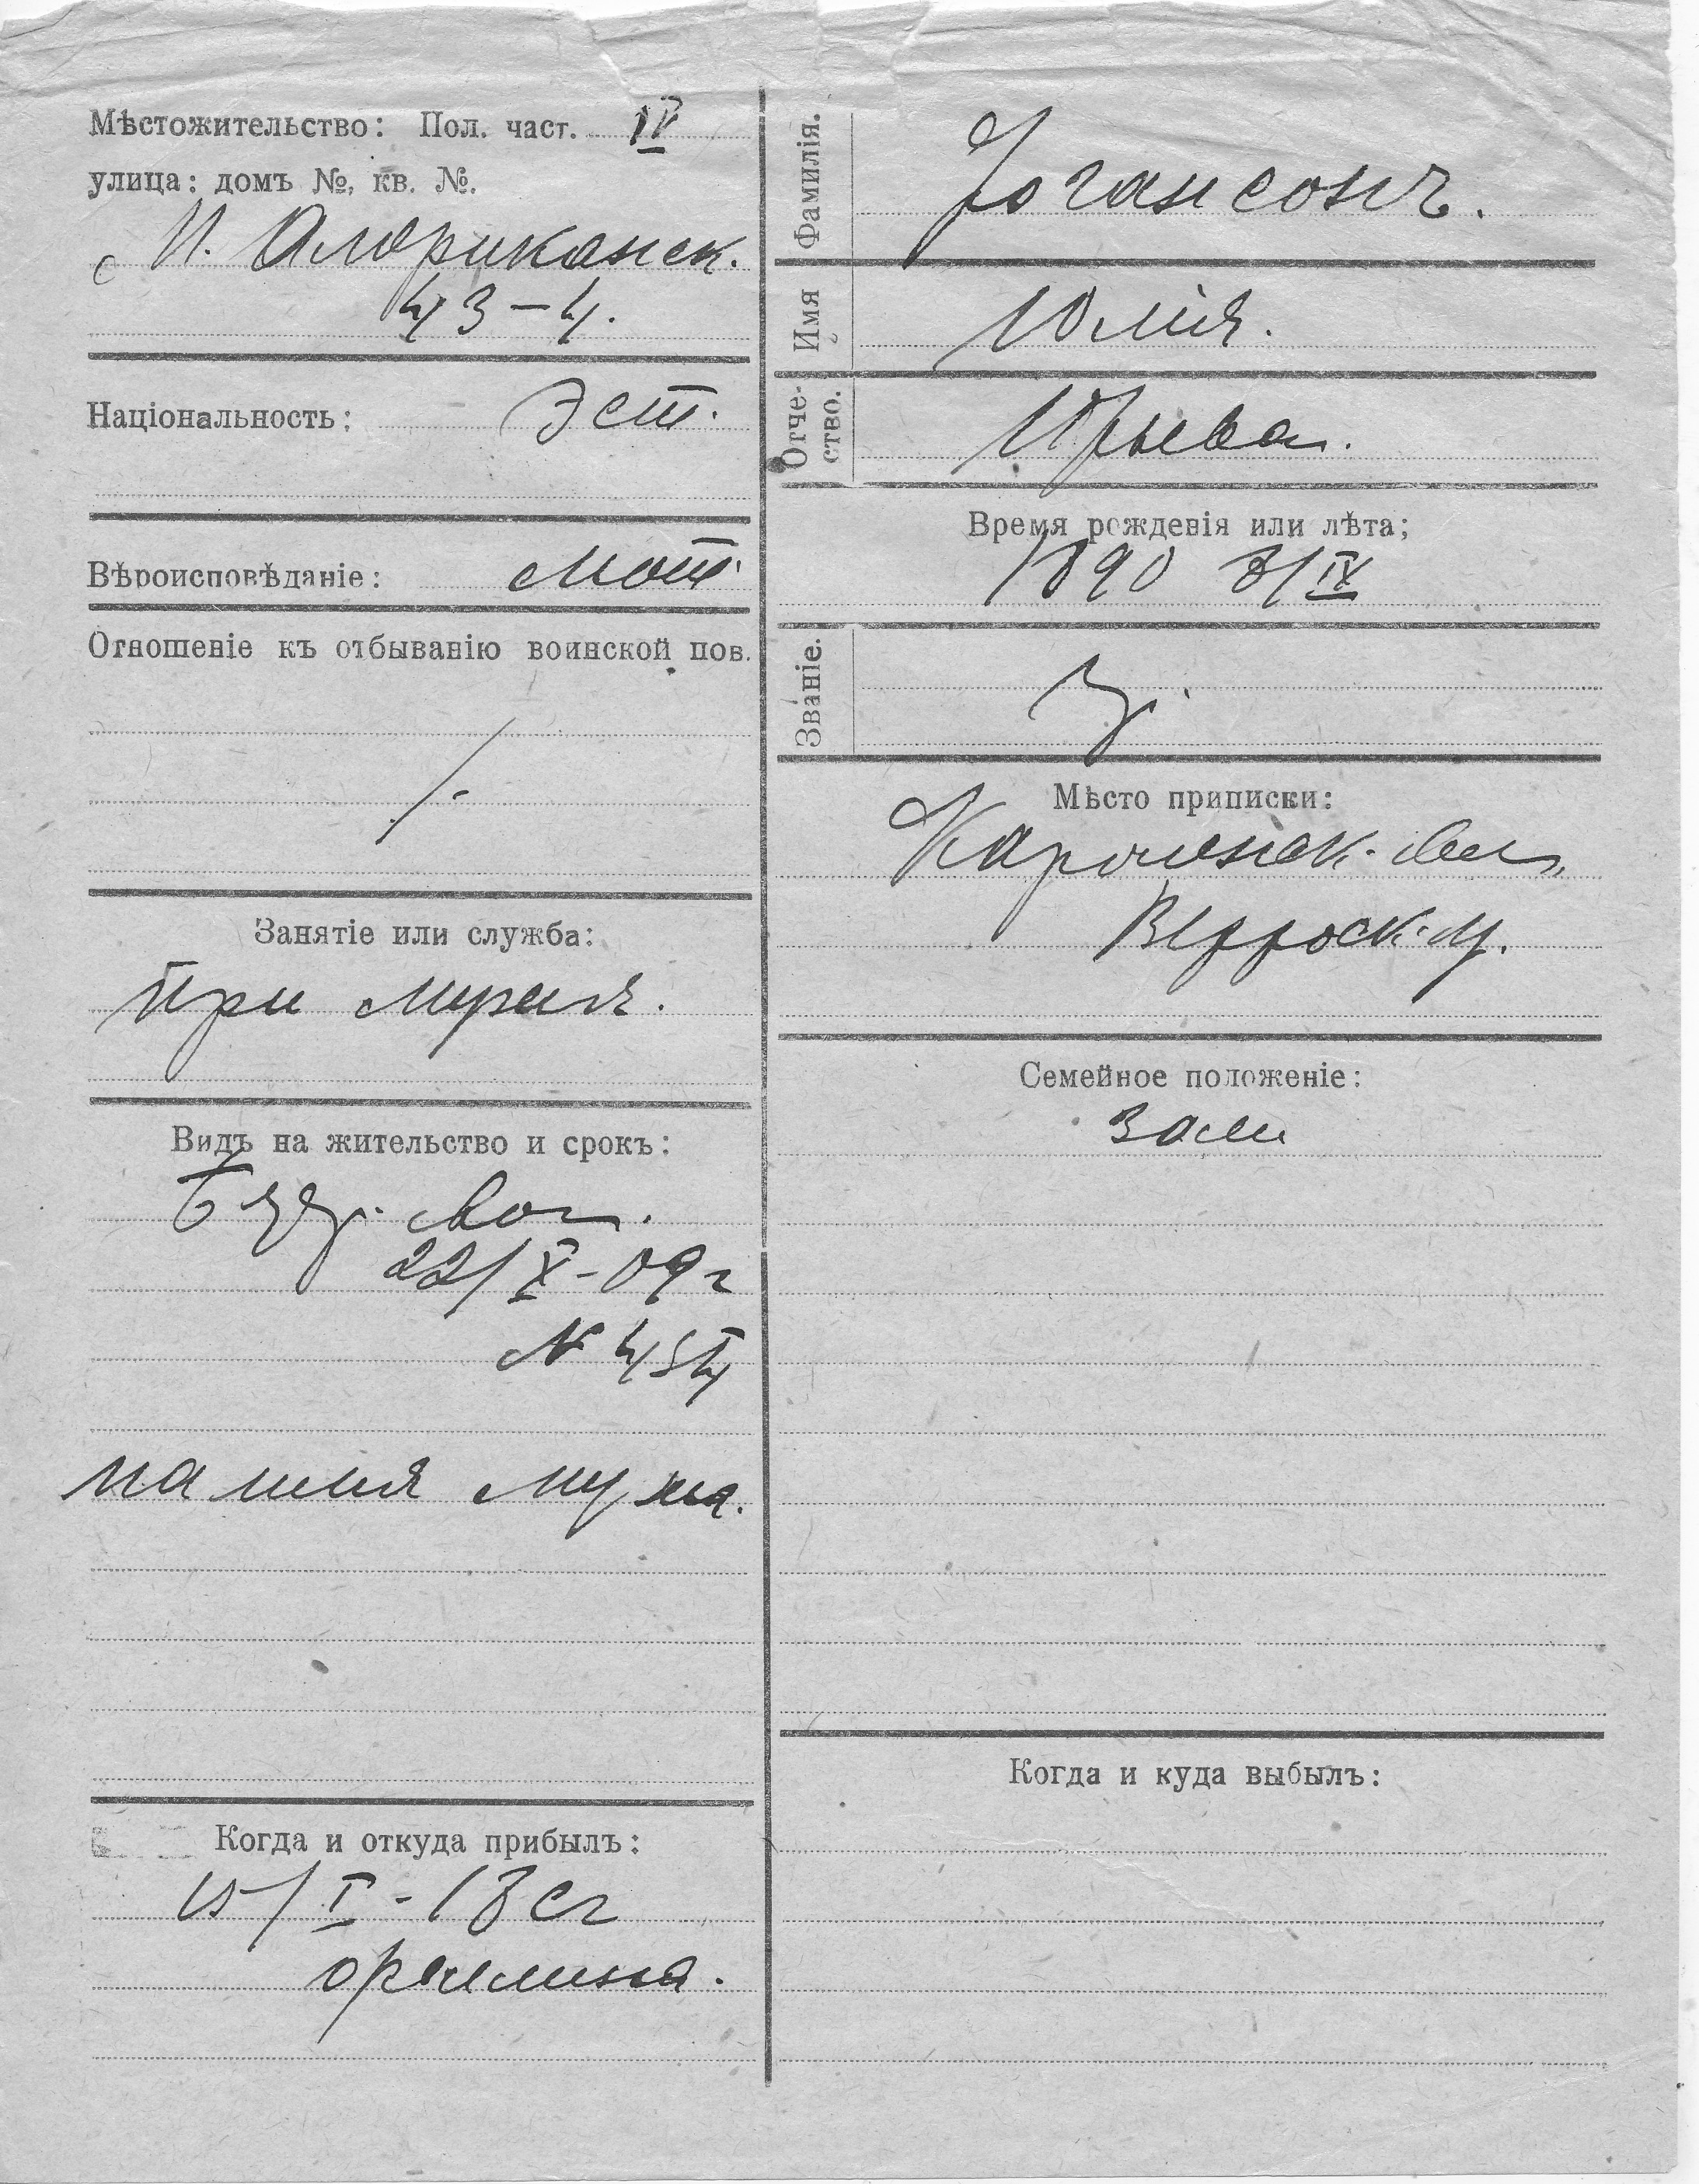 Мѣстожительство: Пол. част. IV
улица: домъ №, кв. №.
43-4.
Національность: Эст.
Вѣроисповѣданіе: Лют.
Отношеніе къ отбыванію воинской пов.
Занятіе или служба:
При мужѣ.
Видъ на жительство и срокъ:
22/X-09 г
№ 454
мужа.
Когда и откуда прибылъ:
15/I-13 г
Фамилія. Іогансонъ.
Имя Юлія.
Отчество. Юрьева.
Время рожденія или лѣта;
1890 8/IX
Званіе. кр.
Мѣсто приписки:
Вол.
Верроск. у.
Семейное положеніе:
зам
Когда и куда выбылъ: